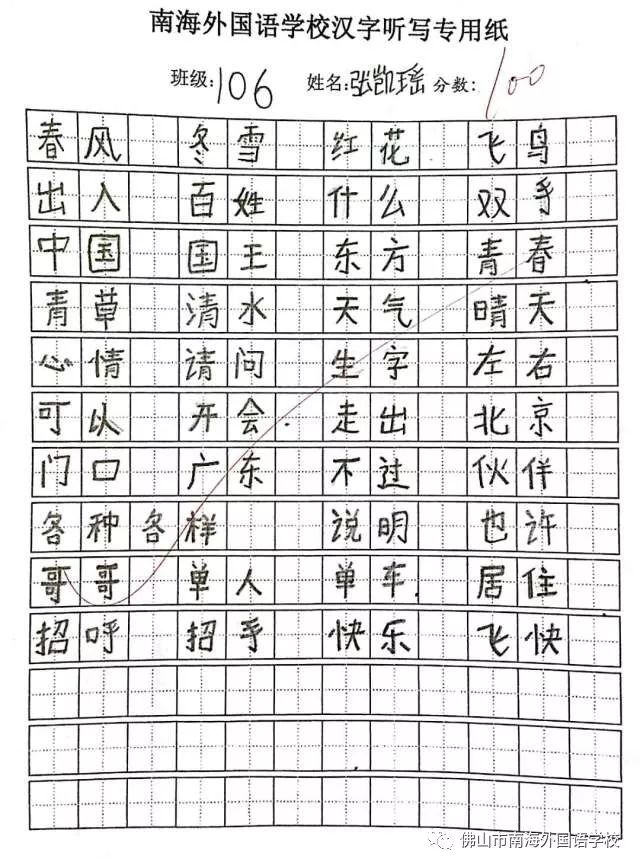 南海外国语学校汉字听写专用纸
班级:106 姓名:张凯瑶 分数:100
春风 冬雪 红花 飞鸟
出入 百姓 什么 双手
中国 国王 东方 青春
青草 清水 天气 晴天
心情 请问 生字 左右
可以 开会 走出 北京
门口 广东 不过 伙伴
各种各样 说明 也许
哥哥 单人 单车 居住
招呼 招手 快乐 飞快
佛山市南海外国语学校